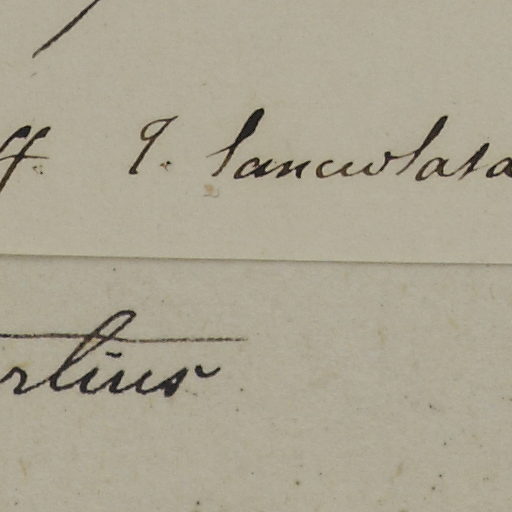 ff. I. lanceolata
rtius